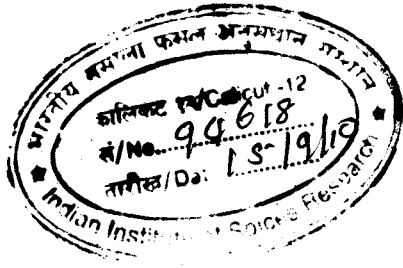 भारतीय मसाला फसल अनुसंधान संस्थान
कालिकट १२/Calicut -12
सं/No. 94618
तारीख/Da: 15/9/10
Indian Institute of Spices Research